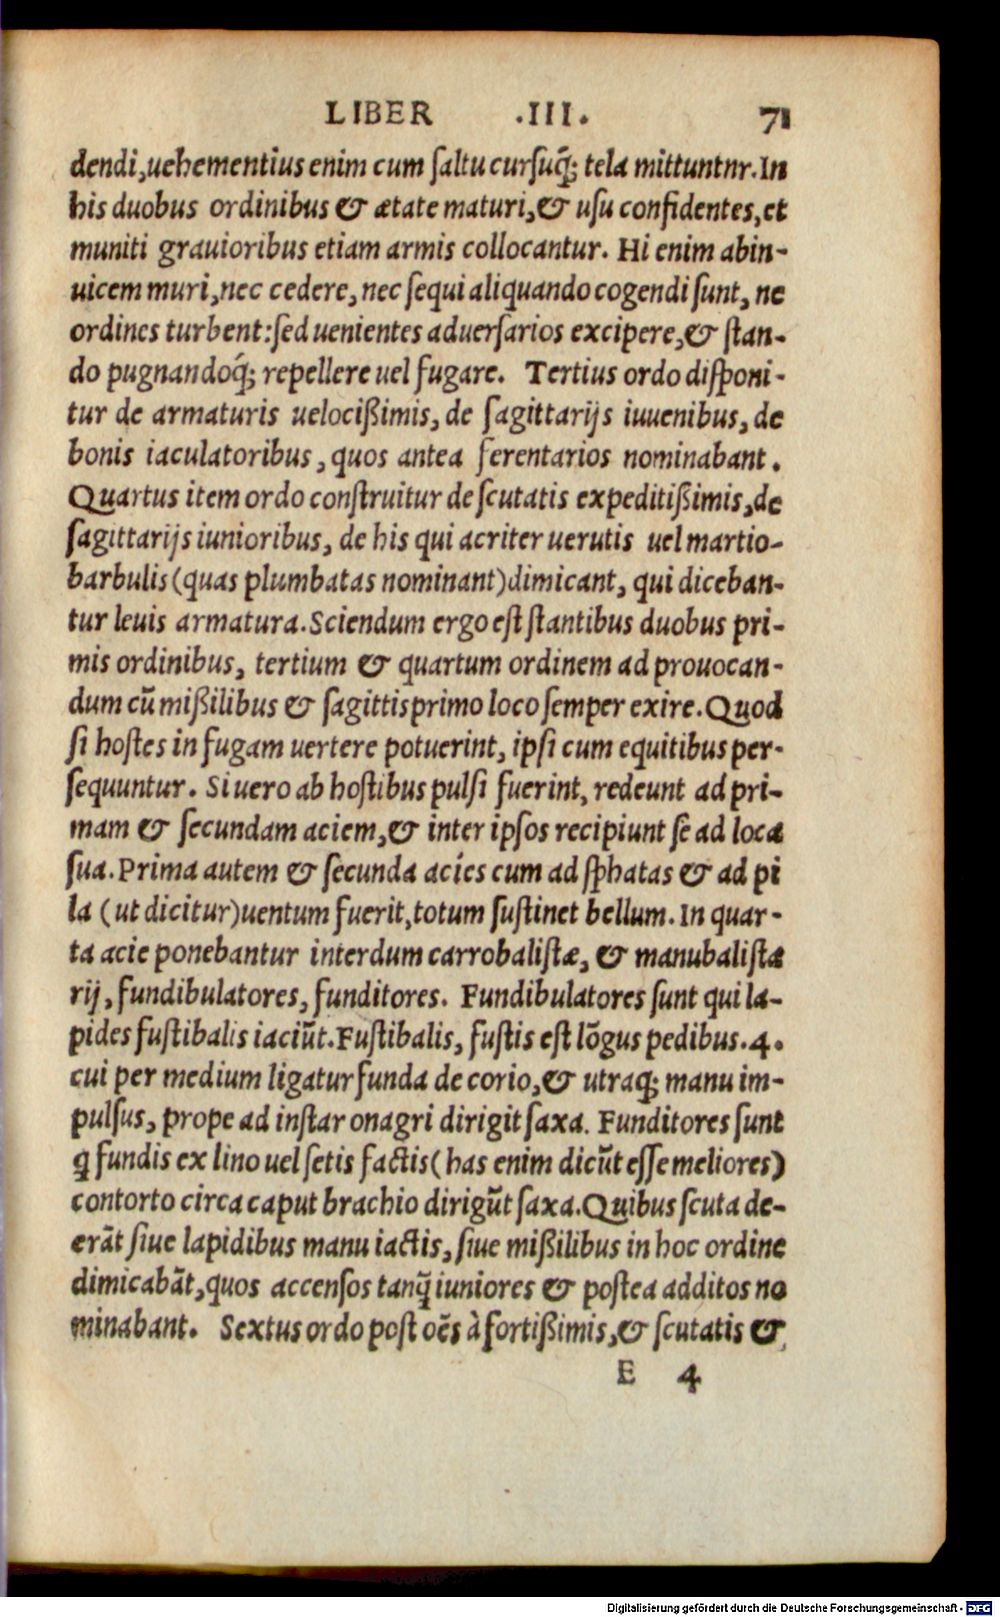 LIBER .III. 71
dendi,uehementius enim cum ſaltu curſuq́; tela mittuntnr.In
his duobus ordinibus & ætate maturi,& uſu confidentes,et
muniti grauioribus etiam armis collocantur. Hi enim abin-
uicem muri,nec cedere, nec ſequi aliquando cogendi ſunt, ne
ordines turbent:ſed uenientes aduerſarios excipere,& ſtan-
do pugnandoq́; repellere uel fugare. Tertius ordo diſponi-
tur de armaturis uelocißimis, de ſagittarijs iuuenibus, de
bonis iaculatoribus, quos antea ferentarios nominabant.
Quartus item ordo conſtruitur de ſcutatis expeditißimis,de
ſagittarijs iunioribus, de his qui acriter uerutis uel martio-
barbulis (quas plumbatas nominant) dimicant, qui diceban-
tur leuis armatura. Sciendum ergo eſt ſtantibus duobus pri-
mis ordinibus, tertium & quartum ordinem ad prouocan-
dum cũ mißilibus & ſagittis primo loco ſemper exire. Quod
ſi hoſtes in fugam uertere potuerint, ipſi cum equitibus per-
ſequuntur. Si uero ab hoſtibus pulſi fuerint, redeunt ad pri-
mam & ſecundam aciem,& inter ipſos recipiunt ſe ad loca
ſua. Prima autem & ſecunda acíes cum ad ſphatas & ad pi
la (ut dicitur) uentum fuerit, totum ſuſtinet bellum. In quar-
ta acie ponebantur interdum carrobaliſtæ, & manubaliſtæ
rij, fundibulatores, funditores. Fundibulatores ſunt qui la-
pides fuſtibalis iaciũt. Fuſtibalis, fuſtis eſt lõgus pedibus.4.
cui per medium ligatur funda de corio,& utraq; manu im-
pulſus, prope ad inſtar onagri dirigit ſaxa. Funditores ſunt
q̃ fundis ex lino uel ſetis factis (has enim dicũt eſſe meliores)
contorto circa caput brachio dirigũt ſaxa. Quibus ſcuta de-
erãt ſiue lapidibus manu iactis, ſiue mißilibus in hoc ordine
dimicabãt,quos accenſos tanq̃ iuniores & poſtea additos no
minabant. Sextus ordo poſt oẽs à fortißimis,& ſcutatis &
E 4
Digitalisierung gefördert durch die Deutsche Forschungsgemeinschaft - DFG